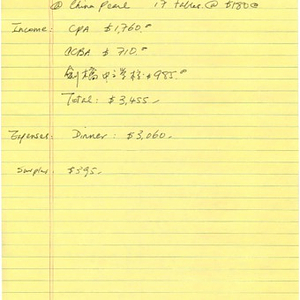 @ China Pearl 17 tables @ $180.00
Income: CPA $1,760.00
CCBA $710.00
劍橋中 $985.00
Total: $3,455.-
Expenses: Dinner: $3,060.-
Surplus: $395.-